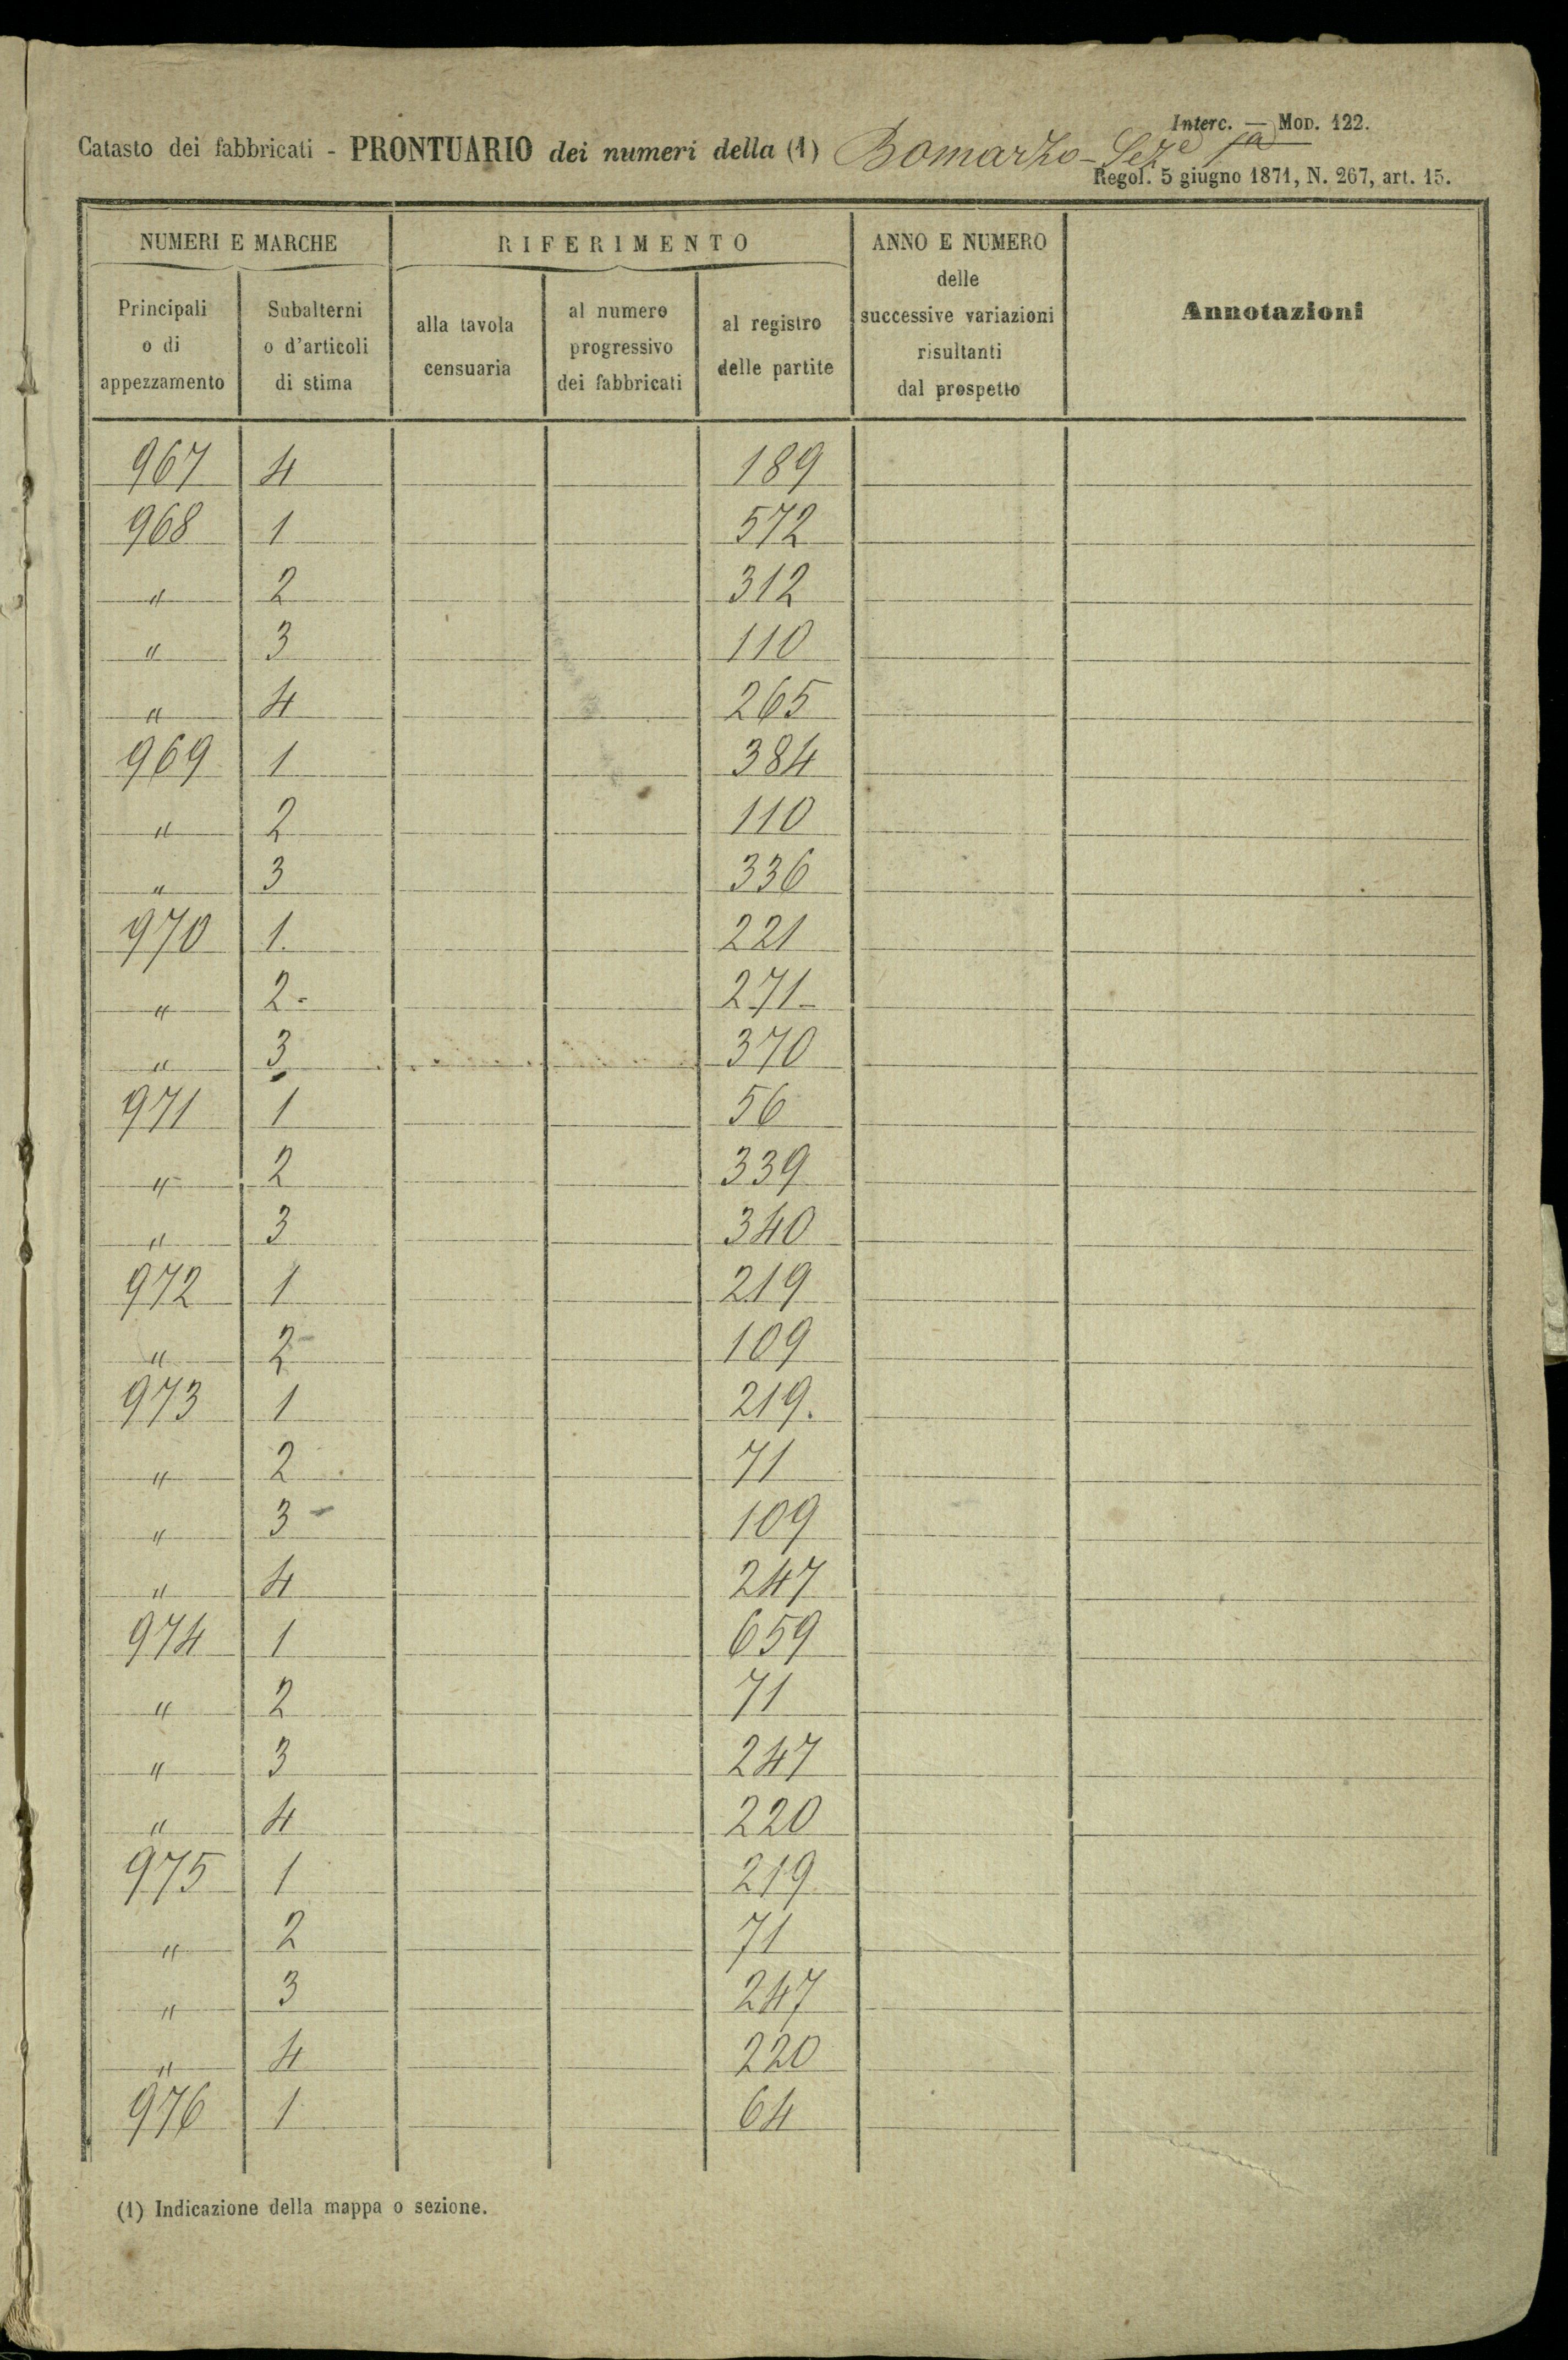 Interc. — Mod. 122.
Catasto dei fabbricati - PRONTUARIO dei numeri della (1) Bomarzo - Seze 1a
Regol. 5 giugno 1871, N. 267, art. 15.
NUMERI E MARCHE
RIFERIMENTO
ANNO E NUMERO
delle
successive variazioni
risultanti
dal prospetto
Annotazioni
Principali
o di
appezzamento
Subalterni
o d'articoli
di stima
alla tavola
censuaria
al numero
progressivo
dei fabbricati
al registro
delle partite
967 4 189
968 1 572
" 2 312
" 3 110
" 4 265
969 1 384
" 2 110
" 3 336
970 1. 221
" 2 - 271 -
" 3 370
971 1 56
" 2 339
" 3 340
972 1 219
" 2 - 109
973 1 219.
" 2 71
" 3 - 109
" 4 247
974 1 659
" 2 71
" 3 247
" 4 220
975 1 219
" 2 71
" 3 247
" 4 220
976 1 64
(1) Indicazione della mappa o sezione.